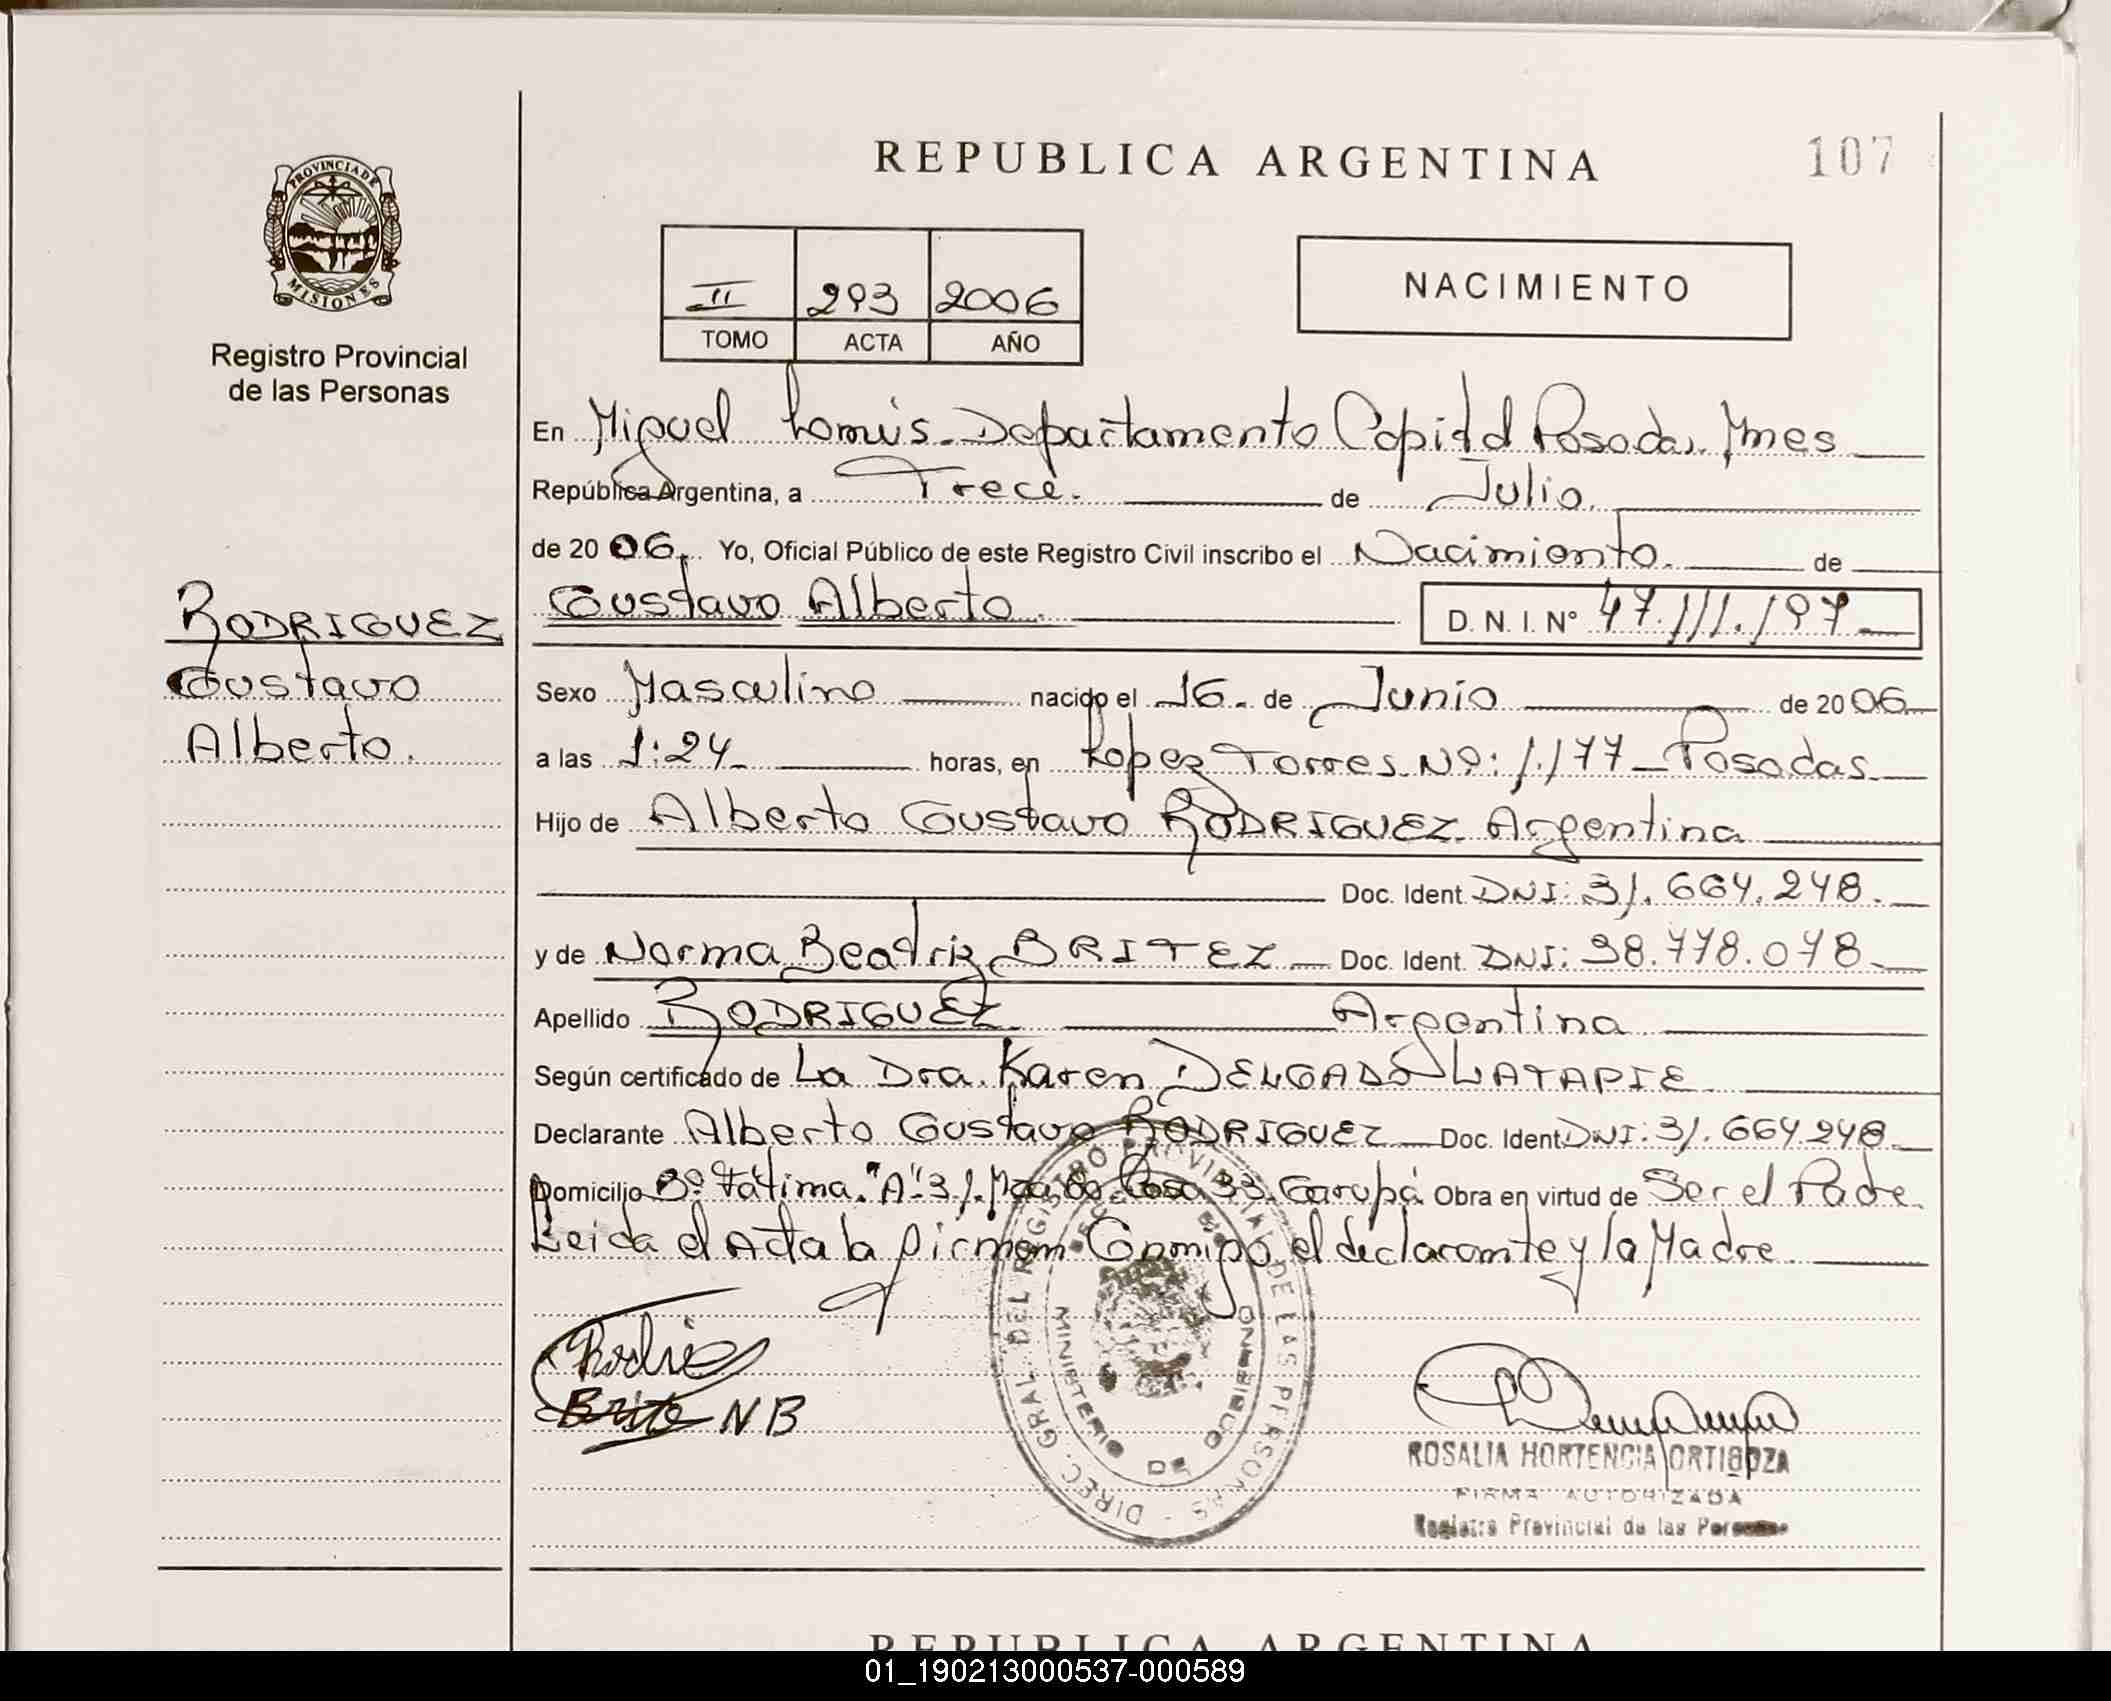 REPUBLICA ARGENTINA
107
PROVINCIA DE
MISIONES
Registro Provincial
de las Personas
II 293 2006
TOMO ACTA AÑO
NACIMIENTO
En Miguel Lanús. Departamento Capital Posadas. Mnes
República Argentina, a Trece. de Julio.
de 2006. Yo, Oficial Público de este Registro Civil inscribo el Nacimiento. de
Gustavo Alberto. D. N. I. Nº 47.111.197
RODRIGUEZ
Gustavo
Alberto.
Sexo Masculino nacido el 16. de Junio de 2006
a las 1:24 horas, en Lopez Torres Nº: 1.177 - Posadas.
Hijo de Alberto Gustavo RODRIGUEZ. Argentina
Doc. Ident. DNI: 31.664.248.
y de Norma Beatriz BRITEZ Doc. Ident. DNI: 38.778.078
Apellido RODRIGUEZ Argentina
Según certificado de La Dra. Karen DELGADO LATAPIE
Declarante Alberto Gustavo RODRIGUEZ Doc. Ident. DNI: 31.664.248
Domicilio Bº. Fátima. "A" 31. Mza, 80. Casa 33. Garupá. Obra en virtud de Ser el Padre
Leida el Acta la firman Conmigo el declarante y la Madre.
Britez NB
DIREC. GRAL. DEL REGISTRO PROVINCIAL DE LAS PERSONAS
MINISTERIO DE GOBIERNO
ROSALIA HORTENCIA ORTIGOZA
FIRMA AUTORIZADA
Registro Provincial de las Personas
REPUBLICA ARGENTINA
01_190213000537-000589